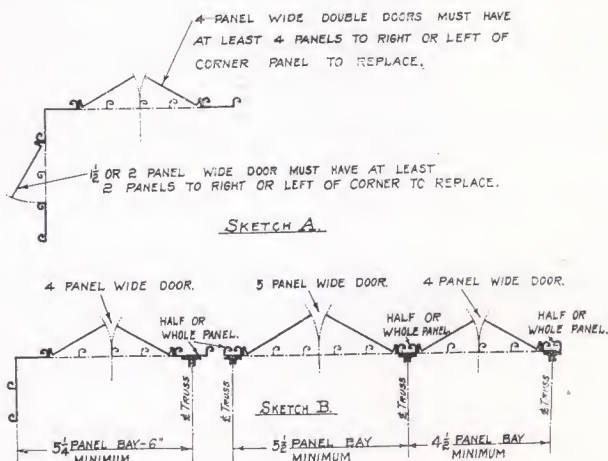 4 PANEL WIDE DOUBLE DOORS MUST HAVE
AT LEAST 4 PANELS TO RIGHT OR LEFT OF
CORNER PANEL TO REPLACE.
1/2 OR 2 PANEL WIDE DOOR MUST HAVE AT LEAST
2 PANELS TO RIGHT OR LEFT OF CORNER TO REPLACE.
SKETCH A.
4 PANEL WIDE DOOR.
5 PANEL WIDE DOOR.
4 PANEL WIDE DOOR.
HALF OR
WHOLE PANEL.
HALF OR
WHOLE PANEL.
HALF OR
WHOLE PANEL.
℄ TRUSS
℄ TRUSS
℄ TRUSS
℄ TRUSS
SKETCH B.
5 1/4 PANEL BAY-6"
MINIMUM
5 1/2 PANEL BAY
MINIMUM
4 1/2 PANEL BAY
MINIMUM